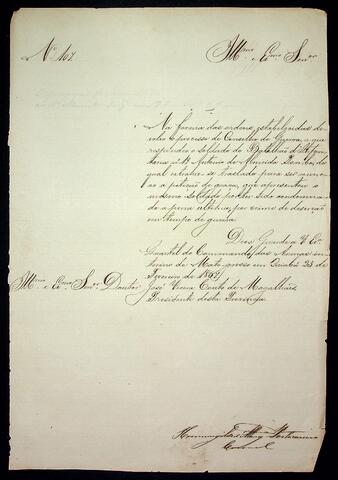 Nº 107
Illmo e Exmo Senr
Na forma das ordens estabelecidas de-
volvo o processo de Conselho de Guerra, a que
respondeo o soldado do Batalhão d'Infan-
taria nº Antonio de Almeida do
qual se traslado para ser
a petição de graça, que apresentou o
mesmo soldado por ter sido condemna-
do a pena ultima, por crime de deserção
em tempo de guerra.
Deos Guarde a V. Exa.
Quartel do Commando das Armas in-
terino de Mato grosso em Cuiabá 23 de
Fevereiro de 1867
Illmo e Exmo Senr Doutor José Vieira Couto de Magalhães
Presidente desta Provincia
Coronel